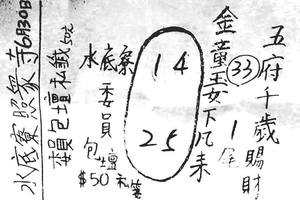 五府千歲賜財
33 1尾
金童玉女下凡来
14
25
水底寮委員包壇
$50
委員包壇私籤
水底寮照眾寺6月30日